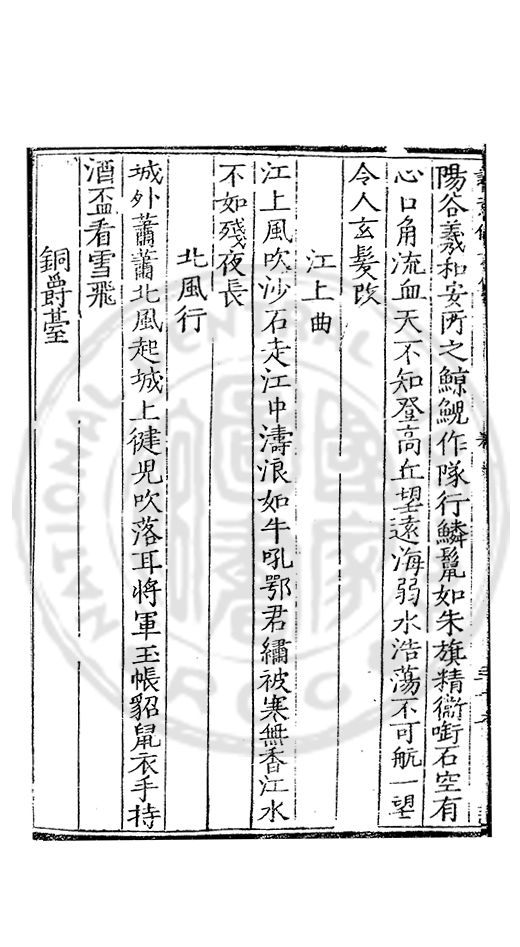 陽谷羲和安所之鯨鯢作隊行鱗鬣如朱旗精衞啣石空有
心口角流血天不知登高丘望遠海弱水浩蕩不可航一望
令人玄髮改
江上曲
江上風吹沙石走江中濤浪如牛吼鄂君繡被寒無香江水
不如殘夜長
北風行
城外蕭蕭北風起城上健兒吹落耳將軍玉帳貂鼠衣手持
酒盃看雪飛
銅爵臺
NATIONAL CENTRAL